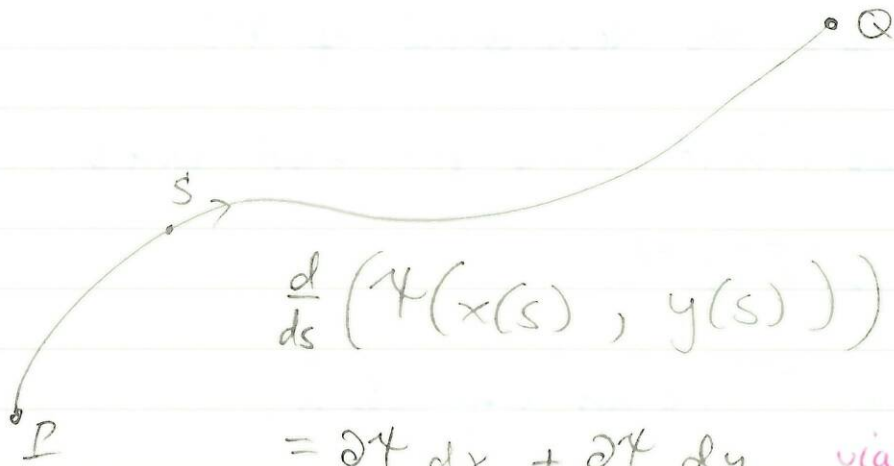 Q
S
d/ds (ψ(x(s), y(s)))
P
= ∂ψ dx + ∂ψ dy via